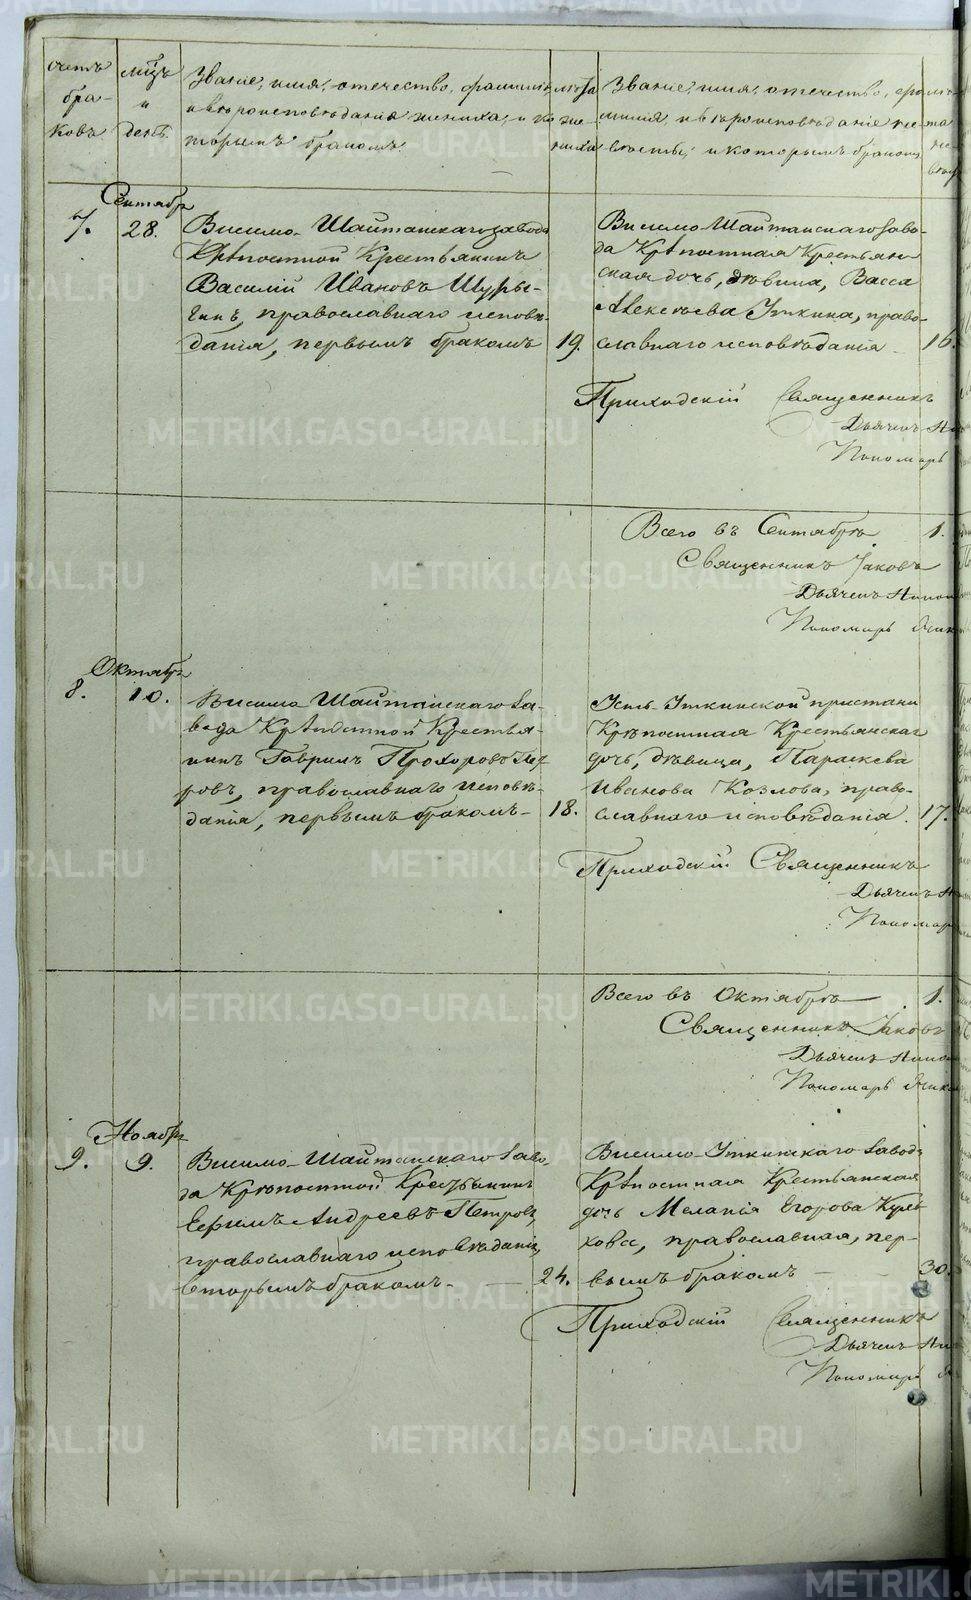 счетъ бра- ковъ
мѣцъ и день
Званіе, имя, отечество, фамилія
и вѣроисповѣданіе жениха, и ко-
торымъ бракомъ
лѣта
же-
ниха
Званіе, имя, отечество, фа-
милія, и вѣроисповѣданіе не-
вѣсты, и которымъ бракомъ
лѣ-
та
не-
вѣсты
Сентябрь
7.
28.
Висимо-Шайтанскаго завода
Крѣпостной Крестьянинъ
Василій Ивановъ Шуры-
гинъ, православнаго исповѣ-
данія, первымъ бракомъ
19.
Висимо-Шайтанскаго заво-
да Крѣпостная Крестьян-
ская дочь, дѣвица, Васса
Алексѣева Уткина, право-
славнаго исповѣданія
16.
Приходскій Священникъ
Дьячекъ
Пономарь
Всего въ Сентябрѣ 1.
Священникъ Іаковъ
Дьячекъ
Пономарь
Октябрь
8.
10.
Висимо-Шайтанскаго За-
вода Крѣпостной Крестья-
нинъ Гаврилъ Прохоровъ Пет-
ровъ, православнаго исповѣ-
данія, первымъ бракомъ-
18.
Усть-Уткинской пристани
Крѣпостная Крестьянская
дочь, дѣвица, Параскева
Иванова Козлова, право-
славнаго исповѣданія.
17.
Приходскій Священникъ
Дьячекъ
Пономарь
Всего въ Октябрѣ 1.
Священникъ Іаковъ
Дьячекъ
Пономарь
Ноябрь
9.
9.
Висимо-Шайтанскаго Заво-
да Крѣпостной Крестьянинъ
Ефимъ Андреевъ Петровъ,
православнаго исповѣданія,
вторымъ бракомъ.
24.
Висимо-Уткинскаго завода
Крѣпостная Крестьянская
дочь Меланія Егорова
православная, пер-
вымъ бракомъ
30.
Приходскій Священникъ
Дьячекъ
Пономарь
METRIKI.GASO-URAL.RU